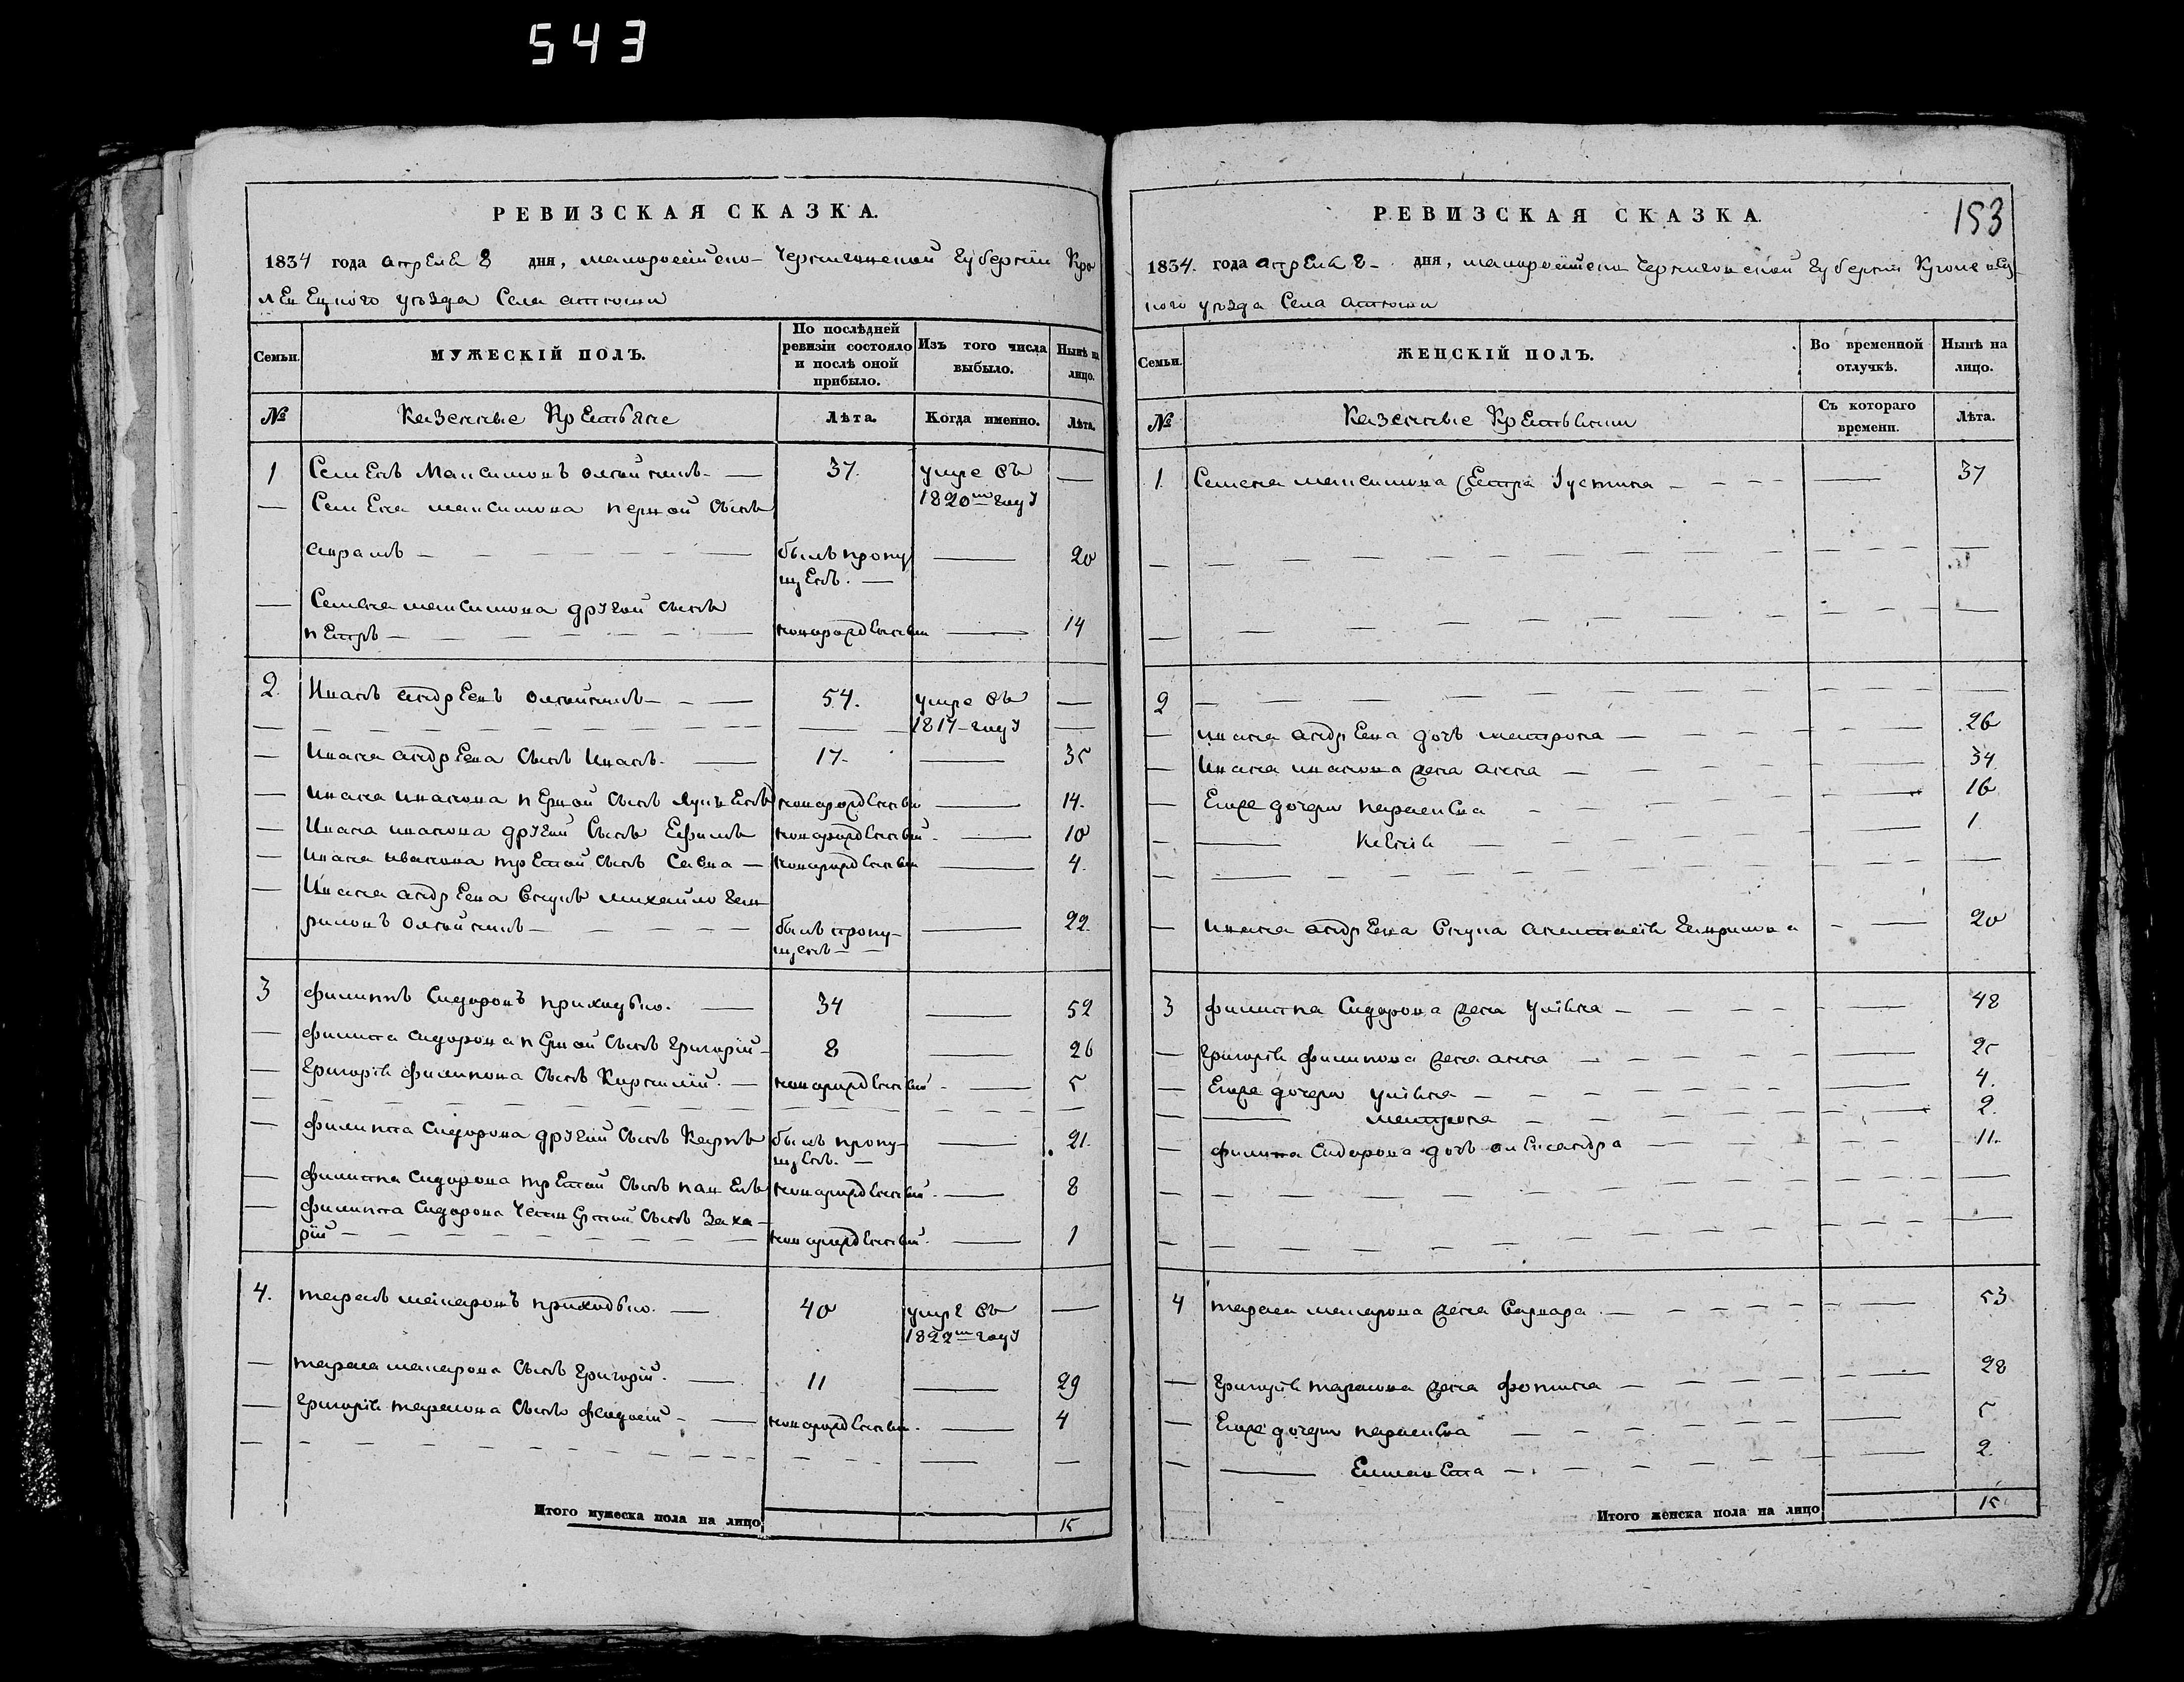 543
РЕВИЗСКАЯ СКАЗКА.
1834 года апреля 8 дня, малороссійско- Черниговской губерніи Кро
левецкого уезда Села
Семьи.
МУЖЕСКІЙ ПОЛЪ.
По послѣдней ревизіи состояло и послѣ оной прибыло.
Изъ того числа выбыло.
Нынѣ на лицо.
№
Казенные Крестьяне
Лѣта.
Когда именно.
Лѣта.
1 Семенъ Максимовъ — 37. умре въ —
1820м году
— Семена максимова первой сынъ
аврамъ — былъ пропу — 20
щенъ. —
— Семена максимова другой сынъ
петръ — новорожденный — 14
2. Иванъ андреевъ — 54. умре въ —
1817-году
— Ивана андреева сынъ Иванъ. — 17. — 35
— Ивана иванова первой сынъ новорожденный — 14.
— Ивана иванова другой сынъ Ефимъ новорожденный. — 10
— Ивана иванова третой сынъ Савва — новорожденный — 4.
— Ивана андреева внукъ михайло гав
риловъ — былъ пропу- — 22.
щенъ —
3 филиппъ Сидоровъ приходько. — 34 — 52
— филиппа сидорова первой сынъ григорій — 8 — 26
— григорія филипова сынъ Кирилій. — новорожденный. — 5
— филиппа Сидорова другой сынъ Карпъ былъ пропу- — 21.
щенъ. —
— филиппа сидорова третой сынъ новорожденный. — 8
— филиппа Сидорова четвертой сынъ Заха-
рій — новорожденный. — 1
4. тарасъ макаровъ приходько. — 40 умре въ —
1822м году
— тараса макарова сынъ григорій. — 11 — 29
— григорія тарасова сынъ федосій — новорожденный. — 4
Итого мужеска пола на лицо 15
153
РЕВИЗСКАЯ СКАЗКА.
1834. года апреля 8- дня, малороссійско Черниговской губерніи Кролевец
кого уезда Села
Семьи.
ЖЕНСКІЙ ПОЛЪ.
Во временной отлучкѣ.
Нынѣ на лицо.
№
Казенные Крестьянки
Съ котораго времени.
Лѣта.
1. Семена максимова сестра Іустина — — 37
2
— ивана андреева дочь матрона — — 26
— Ивана иванова жена анна — — 34
— Его же дочери параскева — — 16
— — — 1.
— ивана андреева внука анастасія гаврилова — — 20
3 филиппа Сидорова жена уліяна — — 48
— григорія филипова жена анна — — 25
— Его же дочери уліяна — — 4.
— — матрона — — 2.
— филиппа Сидорова дочь александра — — 11.
4 тараса макарова жена варвара — — 53
— григорія тарасова жена фотина — — 28
— Его же дочери параскева — — 5
— — Елисавета — — 2.
Итого женска пола на лицо 15